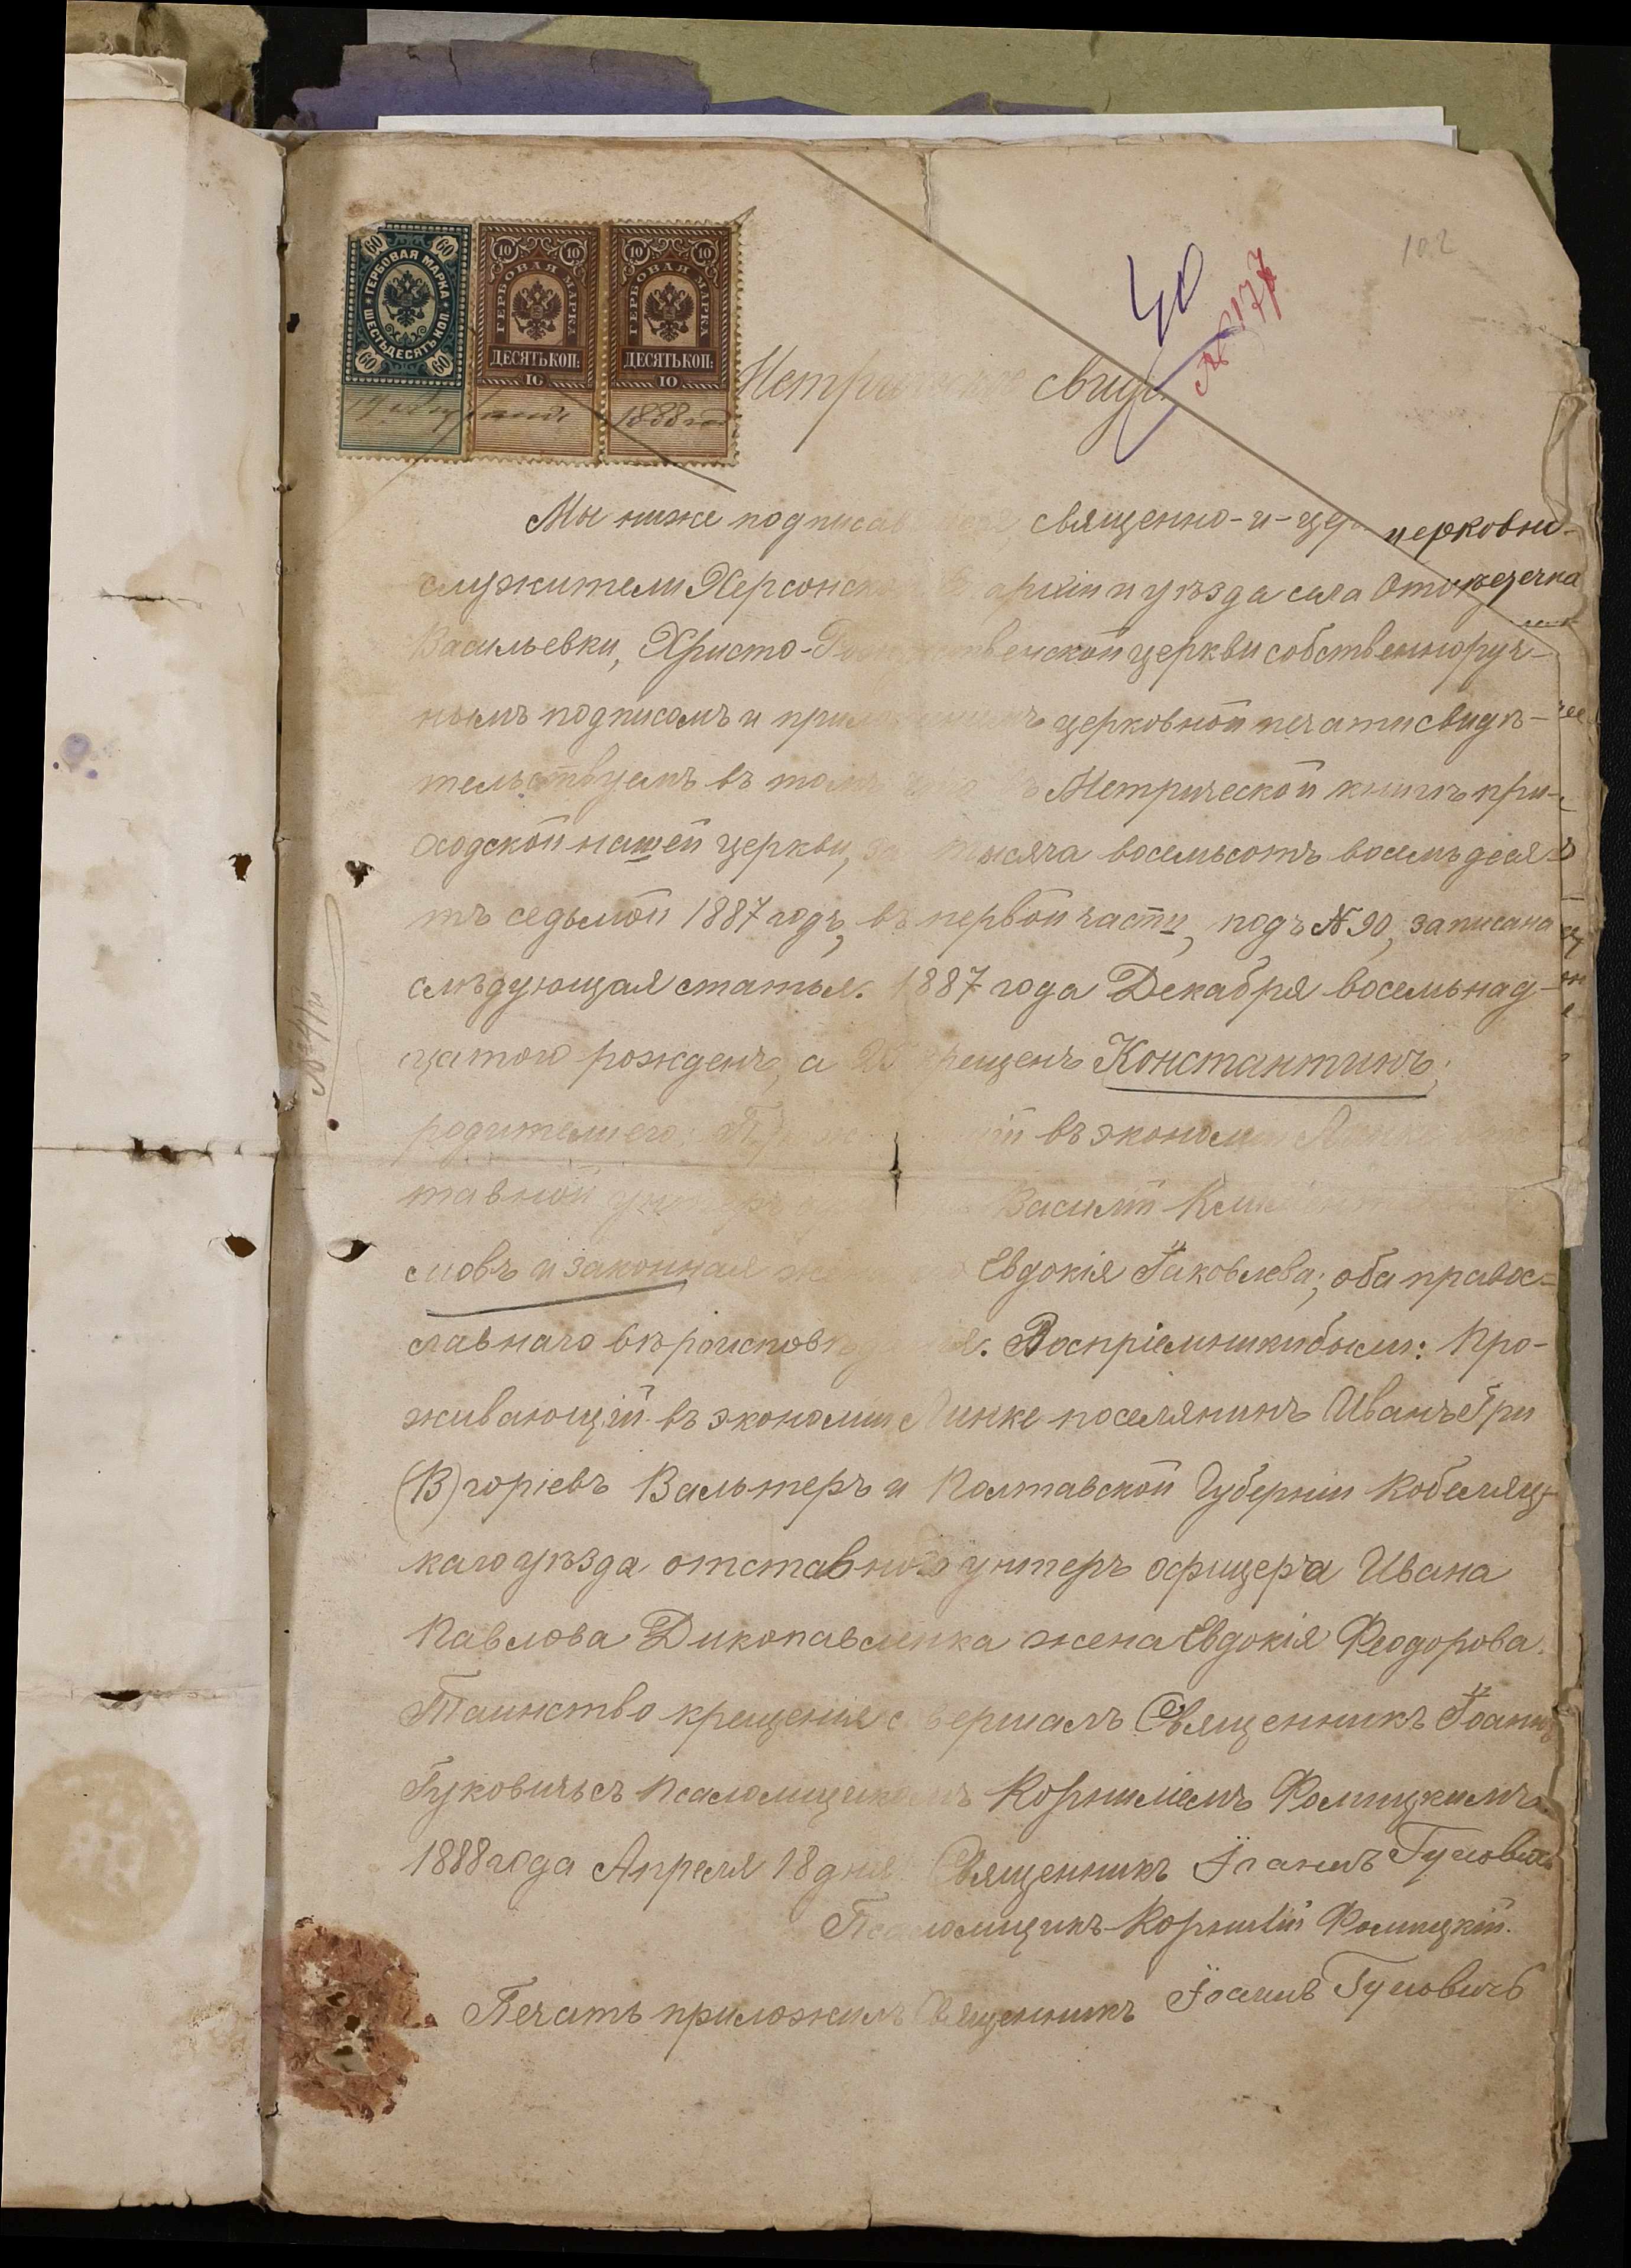 102
40
№ 177
60 60
ГЕРБОВАЯ МАРКА
ШЕСТЬДЕСЯТЪ КОП.
60 60
10 10
ГЕРБОВАЯ МАРКА
ДЕСЯТЬ КОП:
10
10 10
ГЕРБОВАЯ МАРКА
ДЕСЯТЬ КОП:
10
1888 год
Метрическое свид
Мы ниже подписав священно-и-цер церковно-
служители Херсонской Епархіи и уѣзда села
Васильевки, Христо-Рождественской церкви собственноруч-
нымъ подписомъ и приложеніемъ церковной печати свидѣ-
тельствуемъ въ томъ что въ Метрической книгѣ при-
ходской нашей церкви, за тысяча восемьсотъ восемьдеся-
тъ седьмой 1887 годъ, въ первой части, подъ № 90, записана
слѣдующая статья. 1887 года Декабря восемьнад-
цатого рожденъ, а 25 крещенъ Константинъ;
родители его: въ экономіи
тавной унтеръ Василій
мовъ и законная жена его Евдокія Іаковлева; оба правос-
славнаго вѣроисповѣданія. Воспріемники были: Про-
живающій въ экономіи Линке поселянинъ Иванъ Гри
(В) горіевъ Вальтеръ и Полтавской Губерніи Кобеляц-
каго уѣзда отставного унтеръ офицера Ивана
Павлова Дикопавленка жена Евдокія Феодорова.
Таинство крещенія совершалъ Священникъ Іоаннъ
съ Псаломщикомъ Корниліемъ Фомицкимъ.
1888 года Апреля 18 дня. Священникъ Іоаннъ
Псаломщикъ Корнилій Фомицкій.
Печать приложилъ Священникъ Іоаннъ